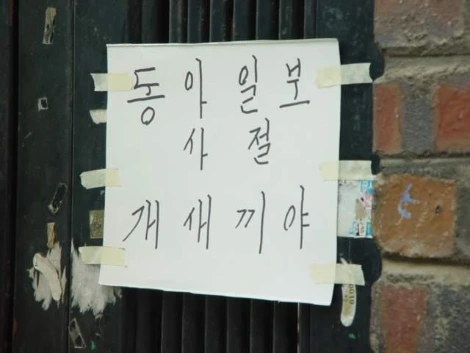 동아일보
사절
개새끼야